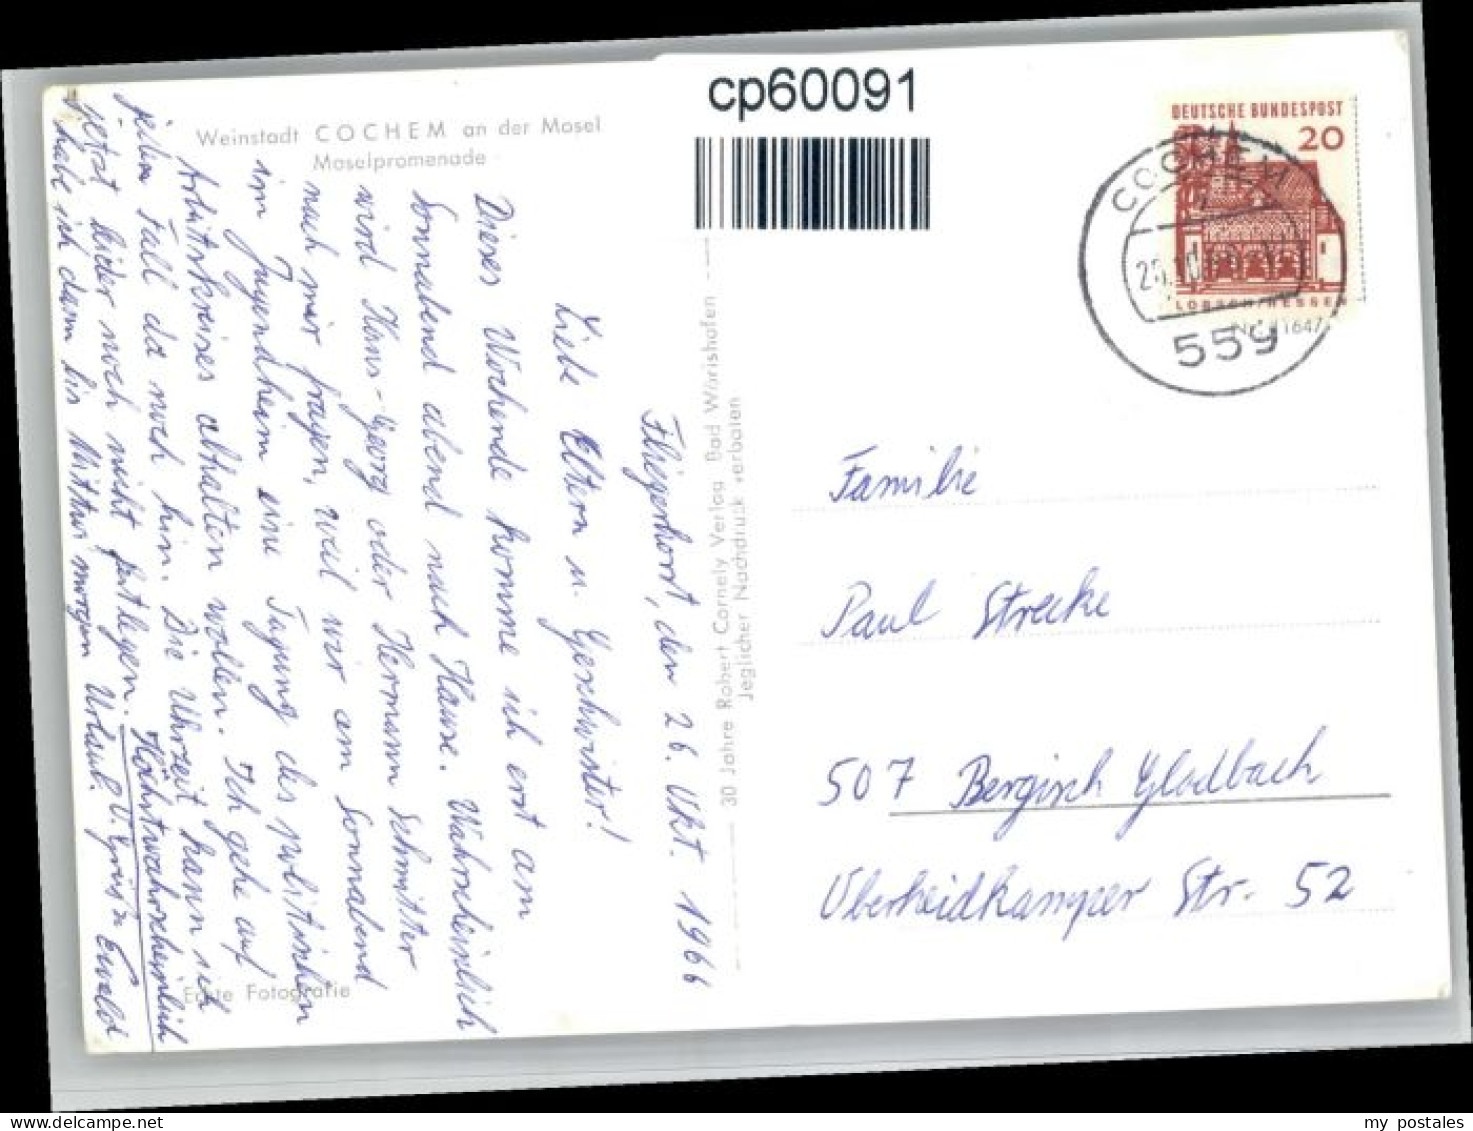 cp60091
Weinstadt COCHEM an der Mosel
Moselpromenade
DEUTSCHE BUNDESPOST
20
COCHEM
559
LORSCH/HESSEN
Fliegerhorst, den 26. Okt. 1966
Liebe Eltern u. Geschwister!
Dieses Wochende komme ich erst am
Sonnabend abend nach Hause. Wahrscheinlich
wird Hans-Georg oder Hermann Schmitter
nach mir fragen, weil wir am Sonnabend
im Jugendheim eine Tagung des politischen
Arbeitskreises abhalten wollen. Ich gehe auf
jeden Fall da noch hin. Die Uhrzeit kann ich
jetzt leider noch nicht festlegen. Höchstwahrscheinlich
habe ich dann bis Mittwi morgen Urlaub. V. Grüße Ewald
Echte Fotografie
30 Jahre Robert Cornely Verlag, Bad Wörishofen
Jeglicher Nachdruck verboten
Familie
Paul Strecke
507 Bergisch Gladbach
Oberheidkamper Str. 52
my postales